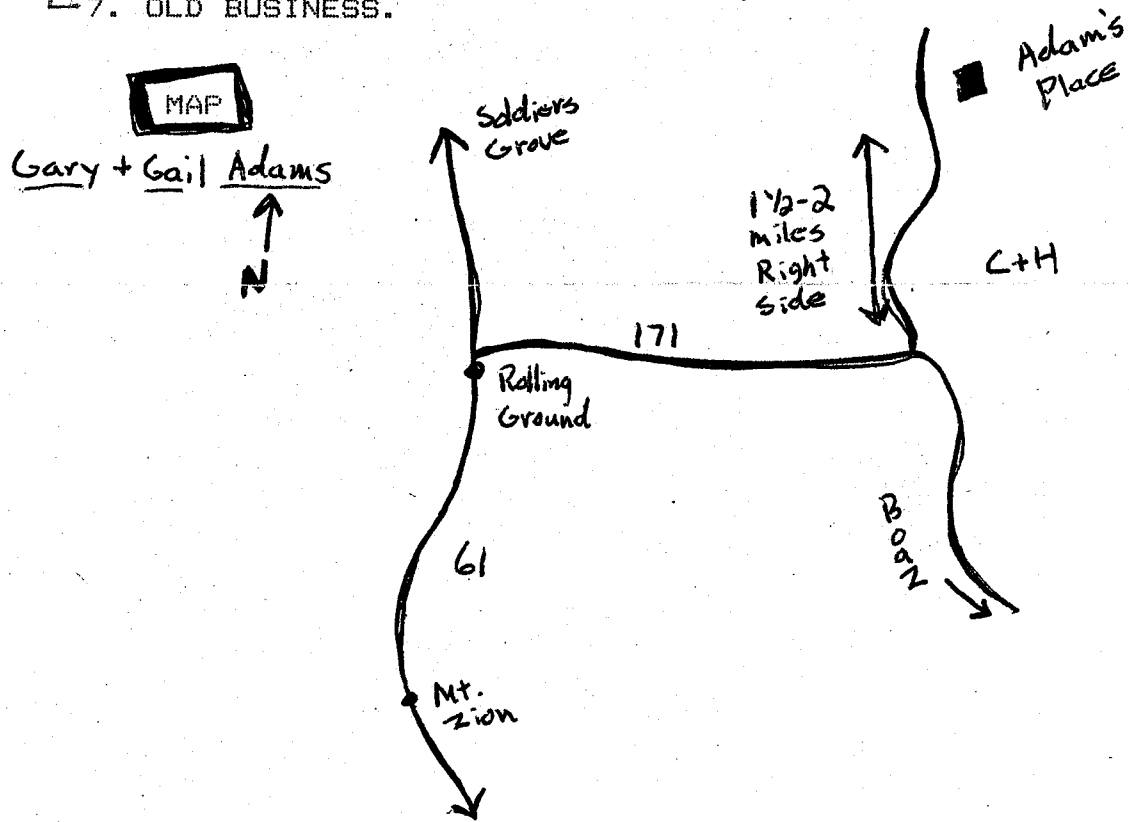 7. OLD BUSINESS.
MAP
Gary + Gail Adams
N
Soldiers
Grove
Adam's
Place
1 1/2-2
miles
Right
side
C+H
171
Rolling
Ground
61
Boaz
Mt.
Zion